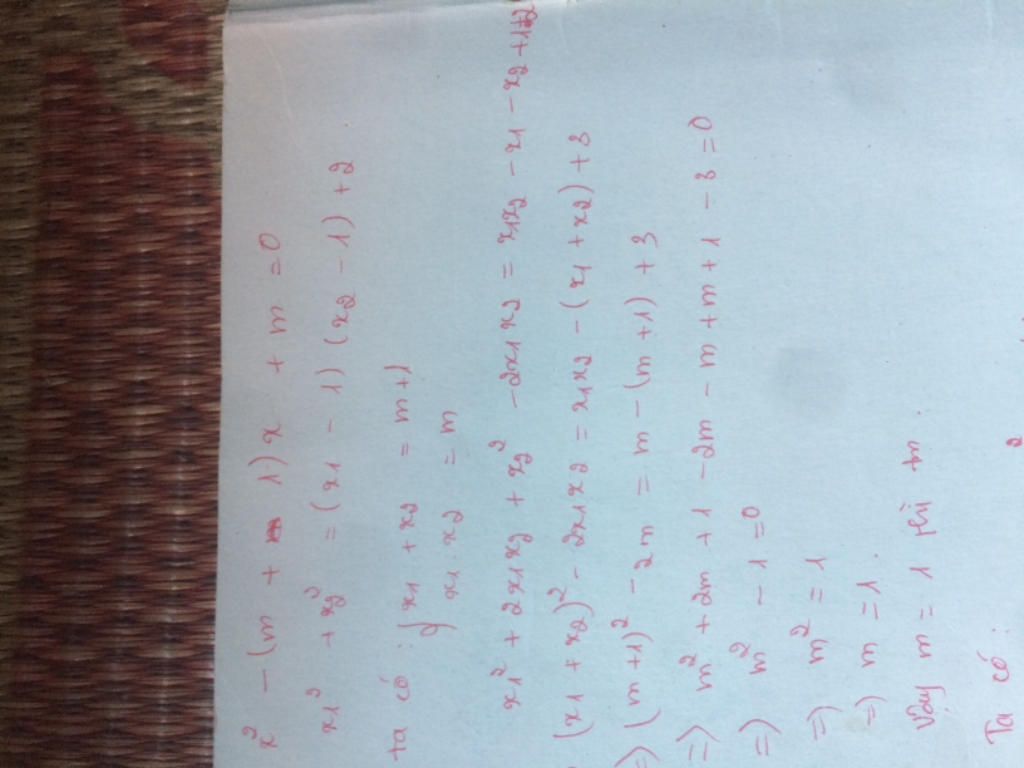 x² - (m + 1)x + m = 0
x1² + x2² = (x1 - 1)(x2 - 1) + 2
ta có : { x1 + x2 = m+1
x1 . x2 = m
x1² + 2x1x2 + x2² - 2x1x2 = x1x2 - x1 - x2 + 1+2
(x1 + x2)² - 2x1x2 = x1x2 - (x1 + x2) + 3
=) (m+1)² - 2m = m - (m+1) + 3
=) m² + 2m + 1 - 2m - m + m + 1 - 3 = 0
=) m² - 1 = 0
=) m² = 1
=) m = 1.
Vậy m = 1 thì tm.
Ta có :
2